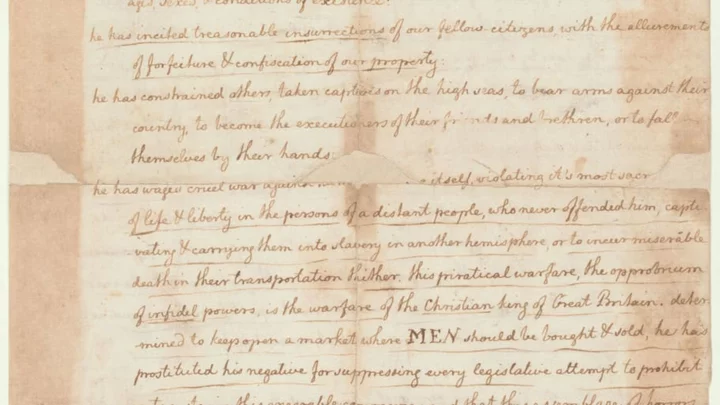 ages, sexes, & conditions of existence.
he has incited treasonable insurrections of our fellow-citizens, with the allurements
of forfeiture & confiscation of our property:
he has constrained others, taken captives on the high seas, to bear arms against their
country, to become the executioners of their friends and brethren, or to fall
themselves by their hands:
he has waged cruel war against itself, violating it's most sacr
of life & liberty in the persons of a distant people, who never offended him, capti-
vating & carrying them into slavery in another hemisphere, or to incur miserable
death in their transportation thither. this piratical warfare, the opprobrium
of infidel powers, is the warfare of the Christian king of Great Britain. deter-
mined to keep open a market where MEN should be bought & sold, he has
prostituted his negative for suppressing every legislative attempt to prohibit
this execrable that this assemblage of horrors